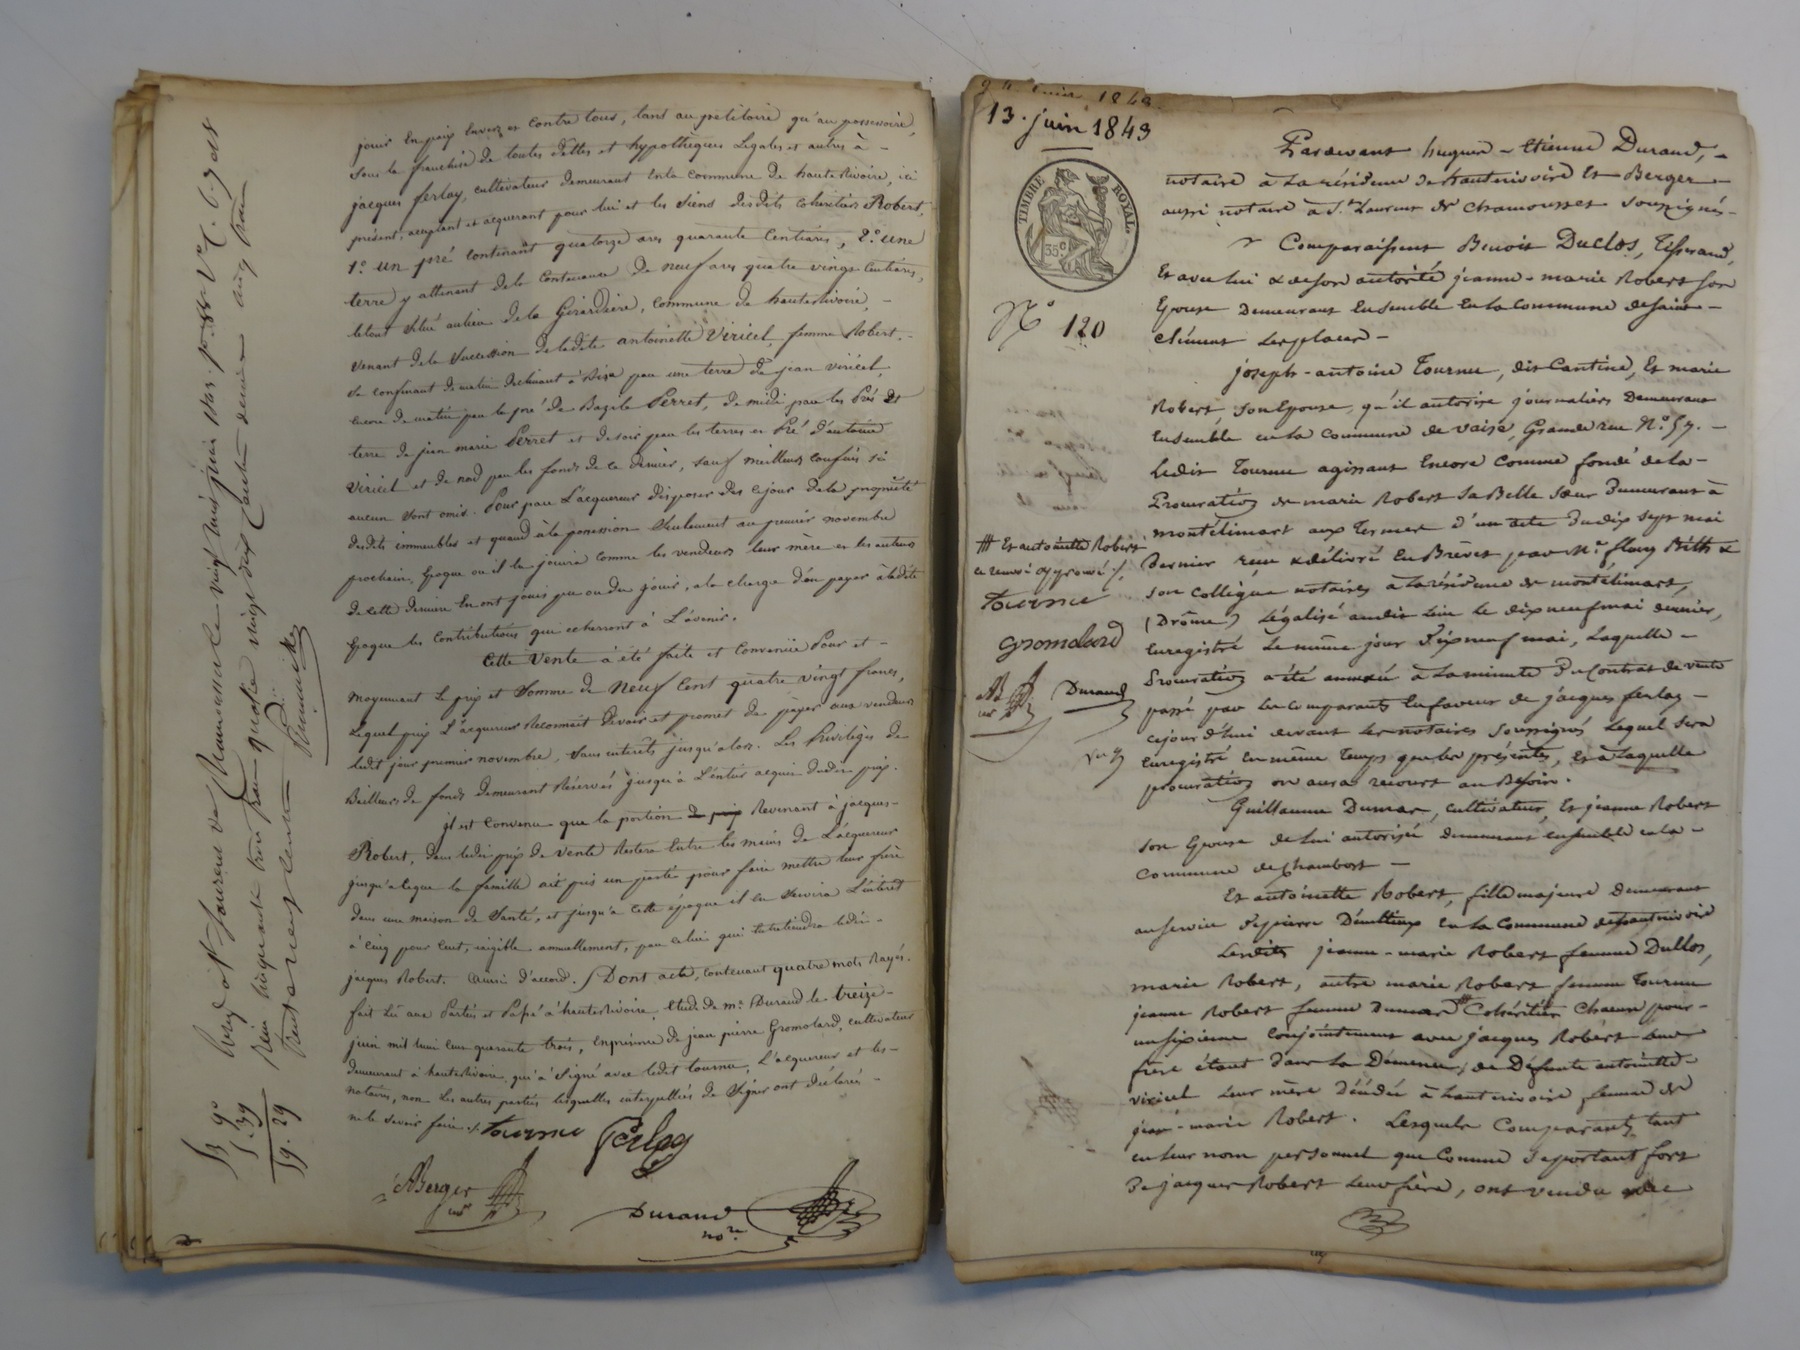 jouir en paix envers et contre tous, tant au pétitoire qu'au possessoire,
sous la franchise de toutes dettes et hypothèques légales et autres à -
jacques ferlay, cultivateur demeurant en la commune de hauterivoire, ici
présent, acceptant et acquerant pour lui et les siens desdits cohéritiers Robert,
1.° un pré contenant quatorze ares quarante centiares, 2.° une
terre y attenant de la contenance de neuf ares quatre vingt centiares,
le tout situé au lieu de la Girardière, commune de hauterivoire, -
venant de la succession de ladite antoinette Viricel, femme Robert. -
se confinant de matin déclinant à bise par une terre de jean viricel,
encore de matin par le pré de Bazile Perret, de midi par les Pré et
terre de jean marie Perret et de soir par les terres et Pré d'antoine
Viricel et de nord par les fonds de ce dernier, sauf meilleurs confins si
aucun sont omis. Pour par l'acquereur disposer dès ce jour de la propriété
desdits immeubles et quand à la possession seulement au premier novembre
prochain, Epoque ou il la jouira comme les vendeurs leur mère et les auteurs
de cette dernière en ont joui pu ou du jouir, à la charge d'en payer à ladite
Epoque les contributions qui echerront à l'avenir.
Cette Vente a été faite et convenüe Pour et -
moyennant le prix et somme de Neuf Cent quatre vingt francs,
Lequel prix l'acquereur reconnait devoir et promet de payer aux vendeurs
ledit jour premier novembre, sans interêts jusqu'alors. Les Privilèges de
Bailleurs de fonds demeurent réservés jusqu'à l'entier acquit dudit prix.
il est convenu que la portion de prix Revenant à jacques -
Robert, dans ledit prix de vente restera entre les mains de l'acquereur
jusqu'à ce que la famille ait pris un parti pour faire mettre leur frère
dans une maison de santé, et jusqu'à cette époque il en servira l'intérêt
à cinq pour cent, exigible annuellement, par celui qui entretiendra ledit -
jacques Robert. Ainsi d'accord. / Dont acte, contenant quatre mots rayés.
fait Lu aux Parties et Passé à hauterivoire, étude de m.e Durand le treize -
juin mil huit cent quarante trois, En présence de jean pierre Gromolard, cultivateur
demeurant à hauterivoire, qui a signé avec ledit tournu, l'acquereur et les -
notaires, non les autres parties lesquelles interpellées de signer ont déclaré -
ne le savoir faire ./.
Tournu
Ferlay
ABerger
Durand
no.re
53 90
5.39
59.29
13. juin 1843
TIMBRE ROYAL
35 c
N.° 120
# Et antoinette Robert
ce renvoi approuvé ./.
Tournu
Gromolard
AB
Durand
Pardevant hugues - Etienne Durand, -
notaire à la résidence de hauterivoire Et Berger -
aussi notaire à S.t Laurent de Chamousset soussignés -
Comparaissent Benoit Duclos, Tisserand,
Et avec lui & de son autorité jeanne - marie Robert son
Epouse demeurant Ensemble En la commune de saint -
clément les places -
joseph - antoine Tournu, dit Cantine, Et marie
Robert, son Epouse, qu'il autorise journaliers demeurant
Ensemble en la commune de vaise, Grande rue N.° 57. -
Ledit Tournu agissant Encore comme fondé de la -
Procuration de marie Robert sa Belle sœur demeurant à
montélimart aux termes d'un acte du dix sept mai
dernier reçu & délivré En Brevet par M.e flory Bith &
son collègue notaires à la résidence de montélimart,
(Drôme) Légalisé audit lieu le dix neuf mai dernier,
Enregistré le même jour dix neuf mai, Laquelle -
Procuration a été annexée à la minute du contrat de vente
passé par les comparants En faveur de jacques ferlay -
cejourd'hui devant les notaires soussignés lequel sera
Enregistré En même temps que les présentes, Et à laquelle
procuration on aura recours au Besoin.
Guillaume Dumas, cultivateur, Et jeanne Robert
son Epouse de lui autorisée demeurant ensemble en la -
commune de Chambost -
Et antoinette Robert, fille majeure demeurant
au service de pierre En la commune de hauterivoire
Lesdits jeanne - marie Robert femme Dullos,
marie Robert, autre marie Robert femme Tournu
jeanne Robert femme Dumas # Cohéritier Chacun pour -
un sixième conjointement avec jacques Robert leur
frère étant dans la Démence, de Défunte antoinette -
viricel leur mère décédée à hauterivoire femme de
jean - marie Robert. Lesquels Comparants tant
en leur nom personnel que comme se portant fort
de jacques Robert leur frère, ont vendu avec